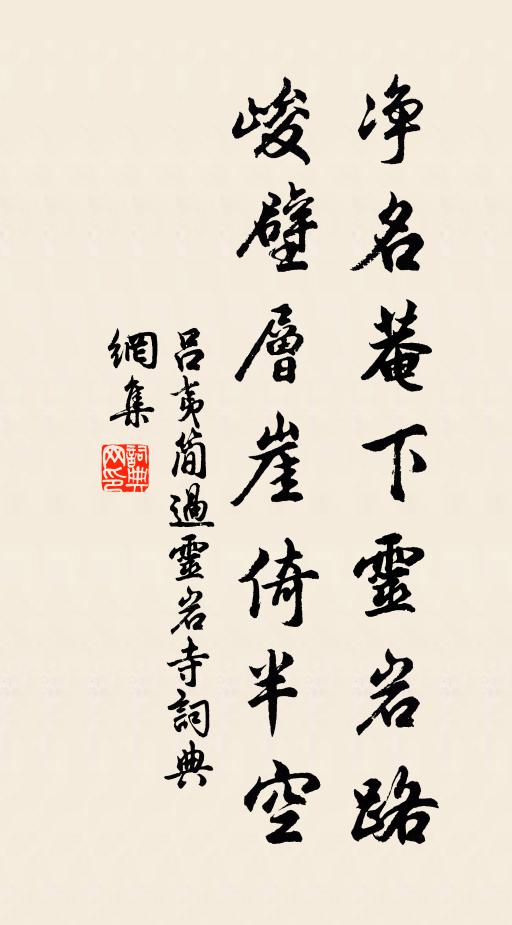 净名菴下靈岩路
峻壁層崖倚半空
呂夷簡過靈岩寺詞典
網集
詞典網印